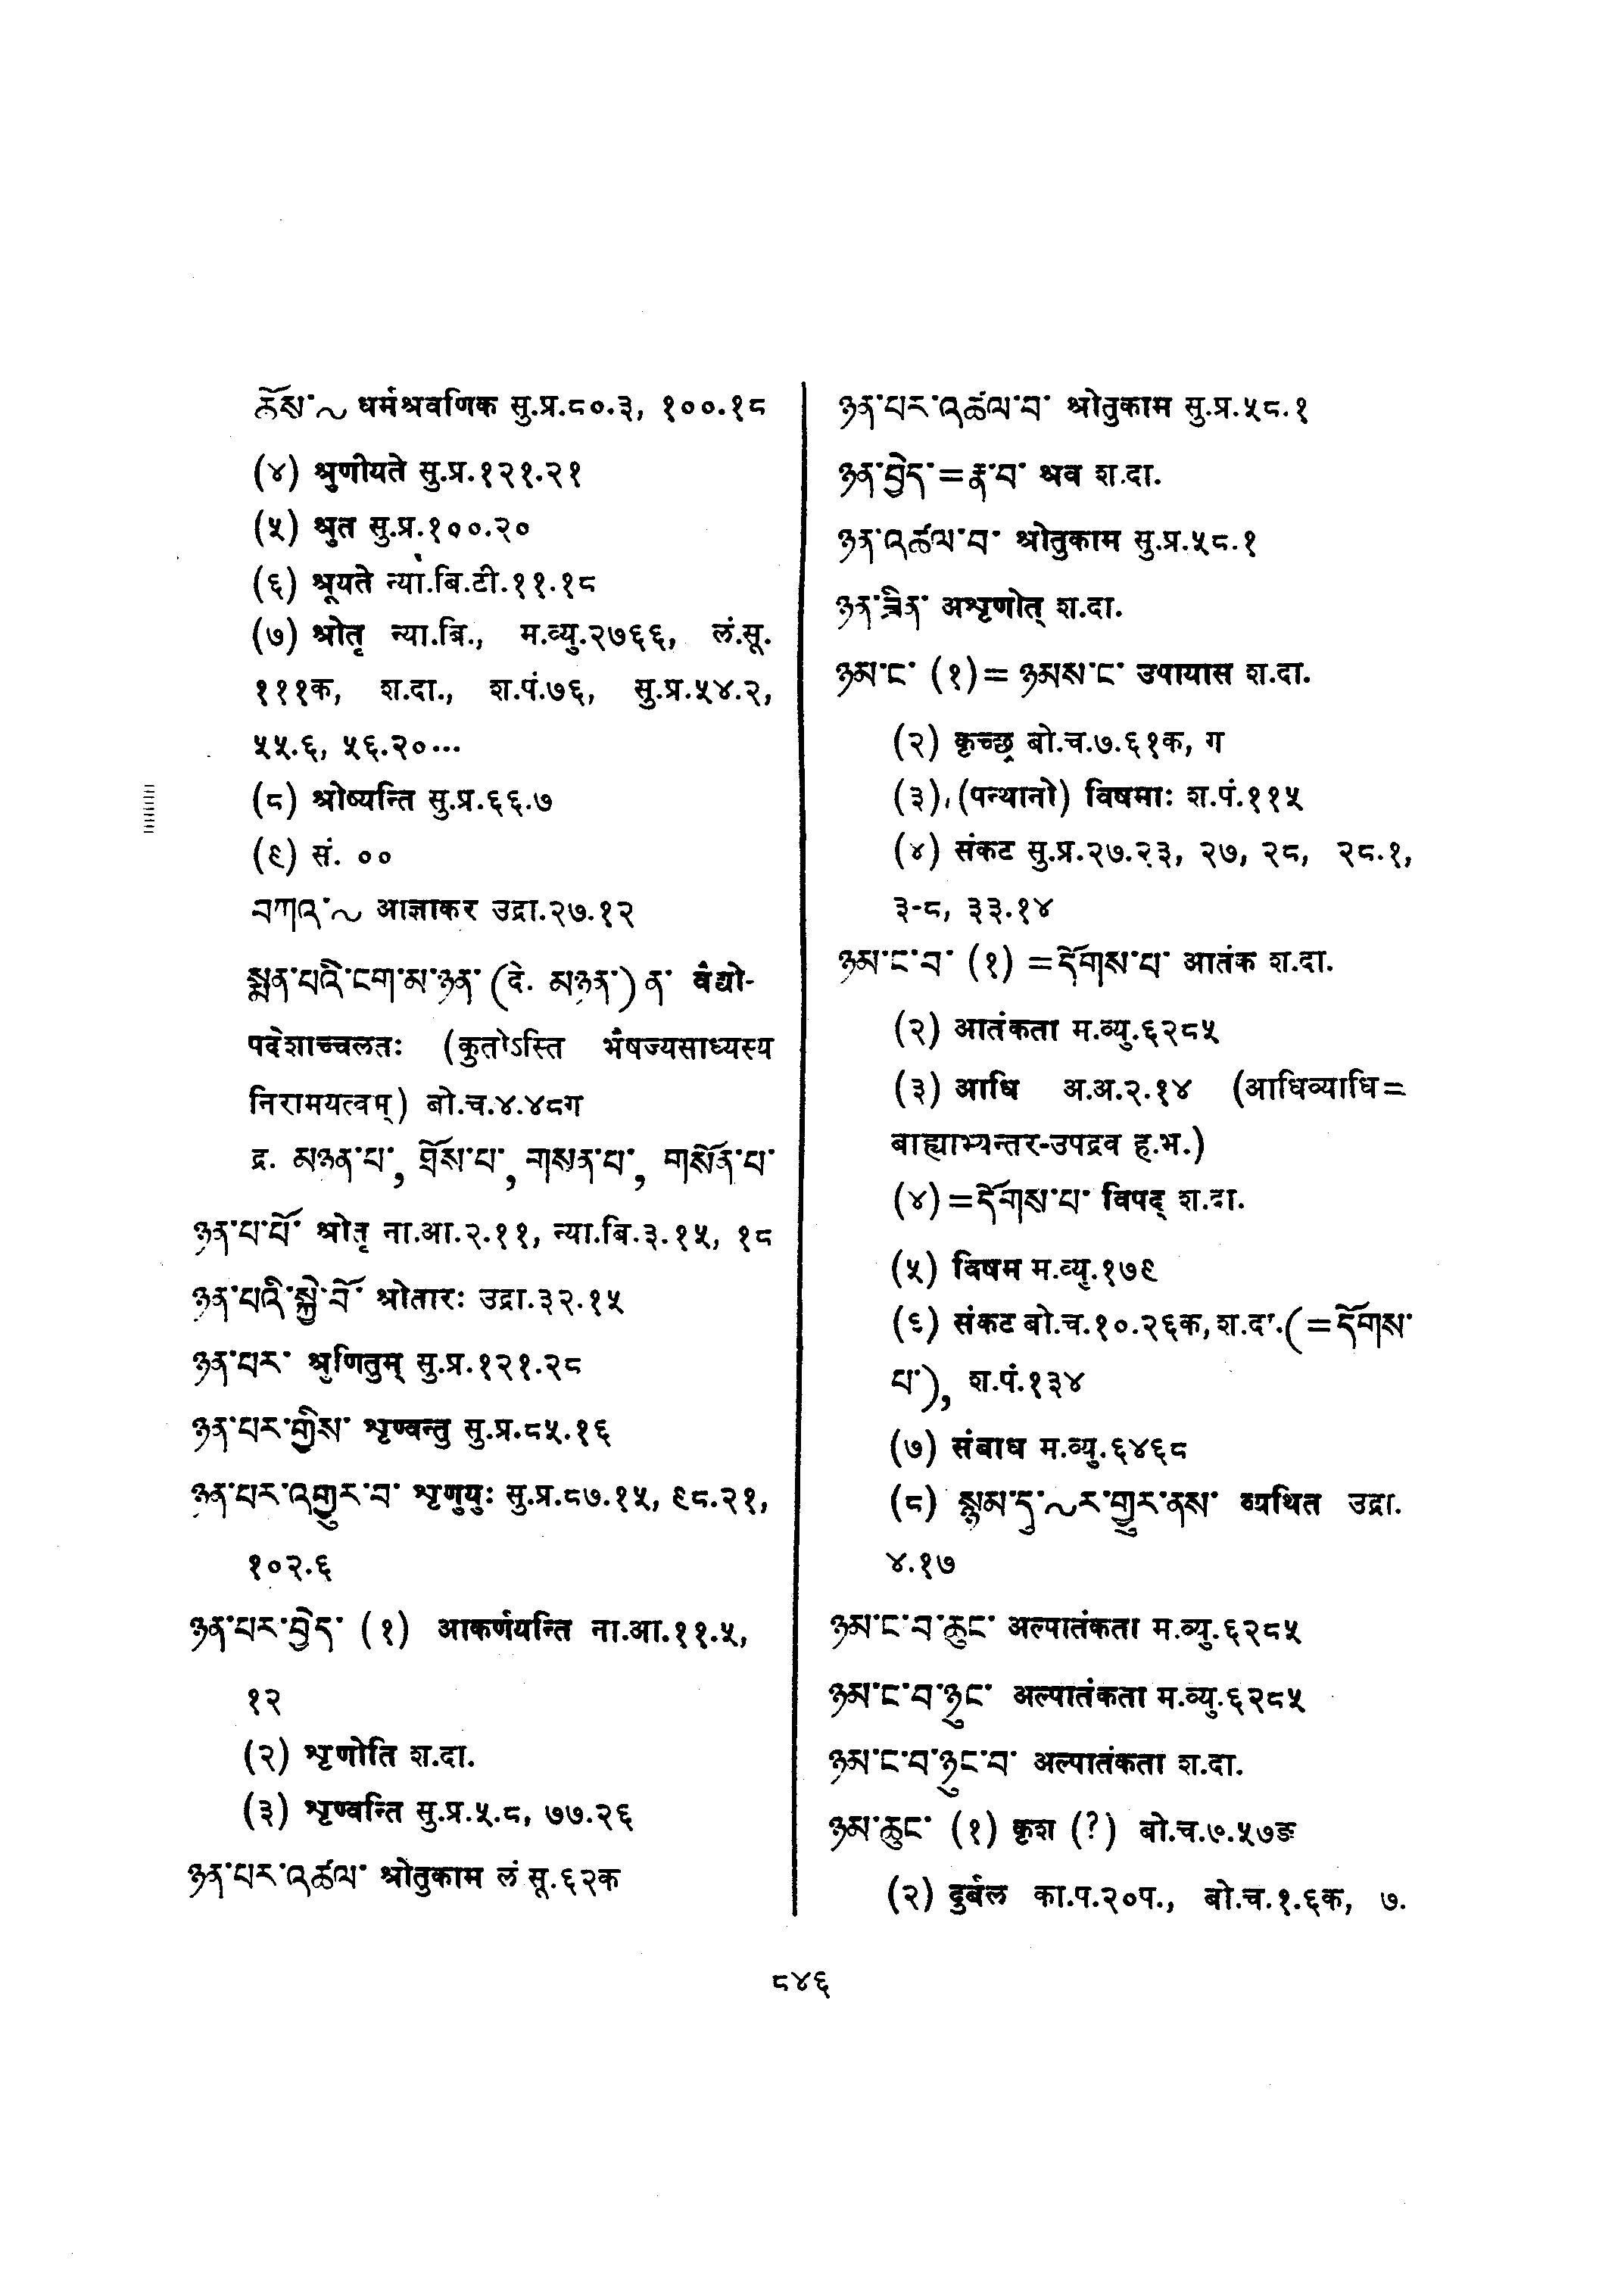 ཆོས་~ धर्मश्रवणिक सु.प्र.८०.३, १००.१८
(४) श्रुणीयते सु.प्र.१२१.२१
(५) श्रुत सु.प्र.१००.२०
(६) श्रूयते न्या.बि.टी.११.१८
(७) श्रोतृ न्या.बि., म.व्यु.२७६६, लं.सू.
१११क, श.दा., श.पं.७६, सु.प्र.५४.२,
५५.६, ५६.२०...
(८) श्रोष्यन्ति सु.प्र.६६.७
(९) सं. ००
བཀའ་~ आज्ञाकर उद्रा.२७.१२
སྨན་པའི་ངག་མ་ཉན་ (དེ. མཉན་) ན་ वैद्यो-
पदेशाच्चलतः (कुतोऽस्ति भैषज्यसाध्यस्य
निरामयत्वम्) बो.च.४.४८ग
द्र. མཉན་པ་, ཐོས་པ་, གསན་པ་, གསོན་པ་
ཉན་པ་པོ་ श्रोतृ ना.आ.२.११, न्या.बि.३.१५, १८
ཉན་པའི་སྐྱེ་བོ་ श्रोतारः उद्रा.३२.१५
ཉན་པར་ श्रुणितुम् सु.प्र.१२१.२८
ཉན་པར་གྱིས་ शृण्वन्तु सु.प्र.८५.१६
ཉན་པར་འགྱུར་བ་ शृणुयुः सु.प्र.८७.१५, ९८.२१,
१०२.६
ཉན་པར་བྱེད་ (१) आकर्णयन्ति ना.आ.११.५,
१२
(२) शृणोति श.दा.
(३) शृण्वन्ति सु.प्र.५.८, ७७.२६
ཉན་པར་འཚལ་ श्रोतुकाम लं सू.६२क
ཉན་པར་འཚལ་བ་ श्रोतुकाम सु.प्र.५८.१
ཉན་བྱེད་=རྣ་བ་ श्रव श.दा.
ཉན་འཚལ་བ་ श्रोतुकाम सु.प्र.५८.१
ཉན་ཟིན་ अशृणोत् श.दा.
ཉམ་ང་ (१)= ཉམས་ང་ उपायास श.दा.
(२) कृच्छ्र बो.च.७.६१क, ग
(३) (पन्थानो) विषमाः श.पं.११५
(४) संकट सु.प्र.२७.२३, २७, २८, २८.१,
३-८, ३३.१४
ཉམ་ང་བ་ (१) =དོགས་པ་ आतंक श.दा.
(२) आतंकता म.व्यु.६२८५
(३) आधि अ.अ.२.१४ (आधिव्याधि=
बाह्याभ्यन्तर-उपद्रव ह.भ.)
(४)=དོགས་པ་ विपद् श.दा.
(५) विषम म.व्यु.१७९
(६) संकट बो.च.१०.२६क, श.दा.(=དོགས་
པ་), श.पं.१३४
(७) संबाध म.व्यु.६४६८
(८) སྙམ་དུ་~ར་གྱུར་ནས་ व्यथित उद्रा.
४.१७
ཉམ་ང་བ་ཆུང་ अल्पातंकता म.व्यु.६२८५
ཉམ་ང་བ་ཉུང་ अल्पातंकता म.व्यु.६२८५
ཉམ་ང་བ་ཉུང་བ་ अल्पातंकता श.दा.
ཉམ་ཆུང་ (१) कृश (?) बो.च.७.५७ङ
(२) दुर्बल का.प.२०प., बो.च.१.६क, ७.
८४६